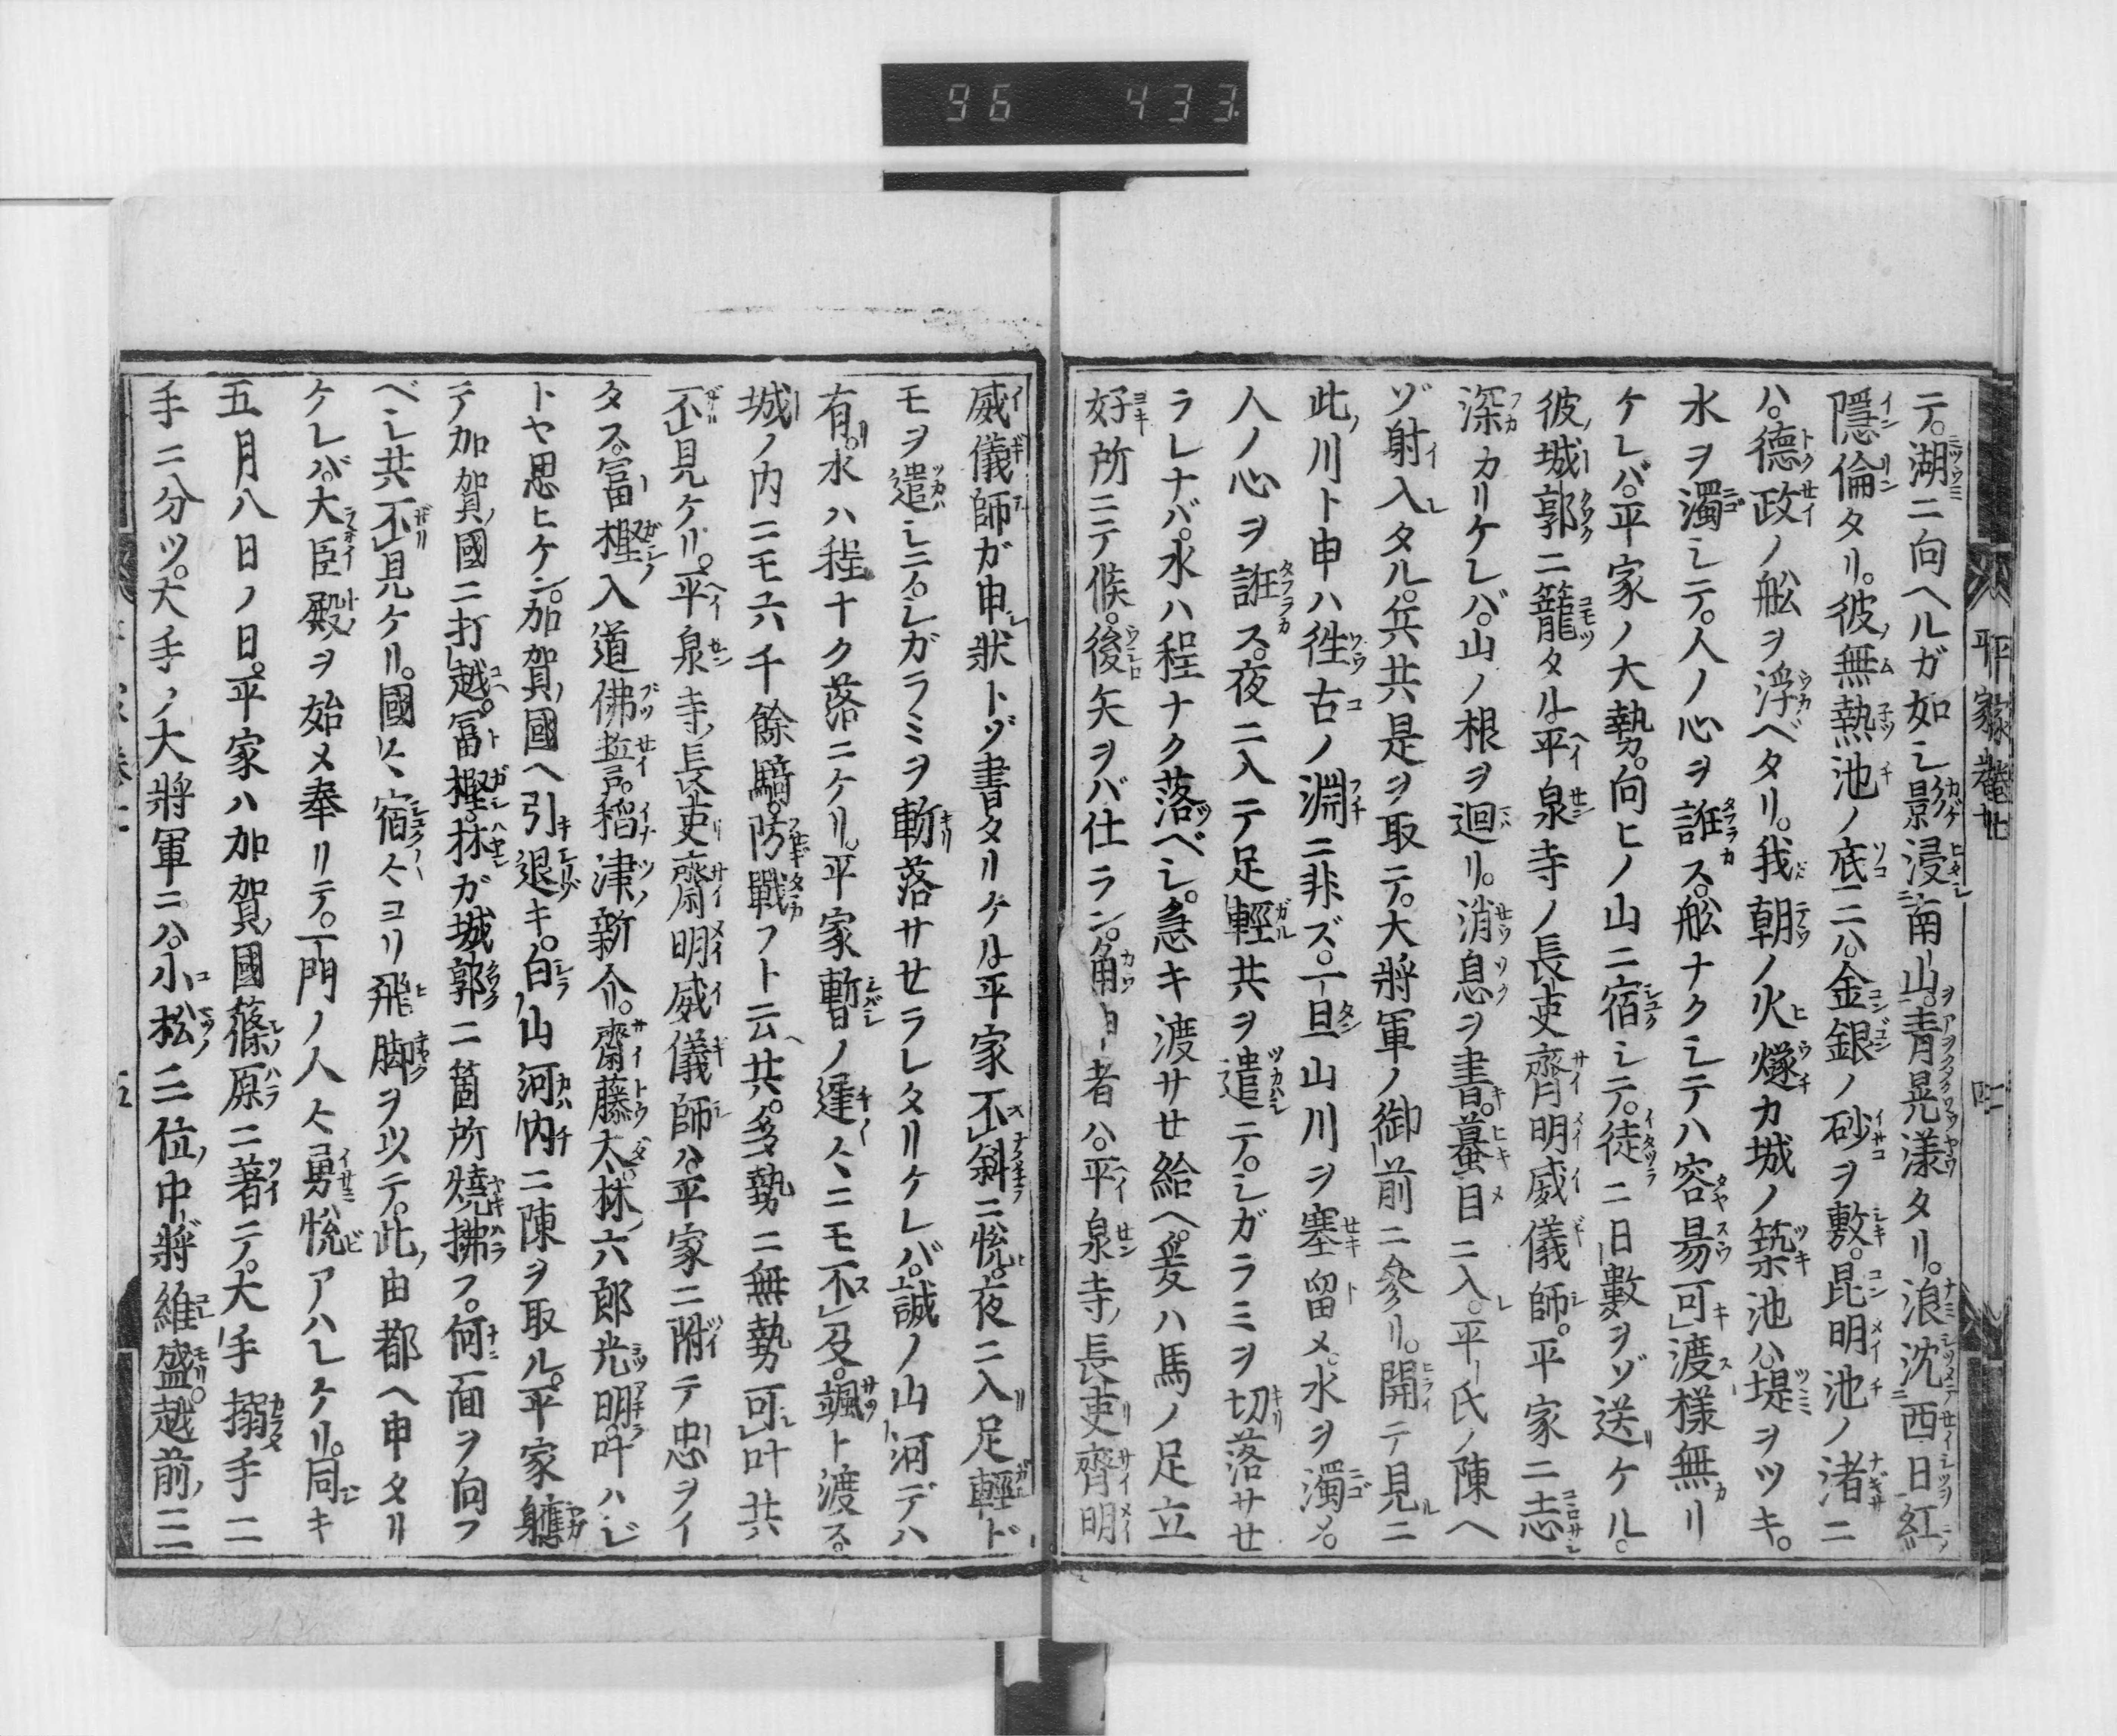 96 433
テ。湖ニ向ヘルガ如シ影浸南山。青晃漾タリ。浪沈西日紅
隱倫タリ。彼無熱池ノ底ニハ。金銀ノ砂ヲ敷。昆明池ノ渚ニ
ハ。德政ノ舩ヲ浮ベタリ。我朝ノ火燧カ城ノ築池ハ。堤ヲツキ。
水ヲ濁シテ。人ノ心ヲ誑ス。舩ナクシテハ容昜可渡樣無リ
ケレバ。平家ノ大勢。向ヒノ山ニ宿シテ。徒ニ日數ヲゾ送ケル。
彼城郭ニ籠タル平泉寺ノ長吏齊明威儀師。平家ニ志
深カリケレバ。山ノ根ヲ迴リ。消息ヲ書。蟇目ニ入。平氏ノ陳ヘ
ゾ射入タル。兵共是ヲ取テ。大將軍ノ御前ニ參リ。開テ見ニ
此川ト申ハ徃古ノ淵ニ非ズ。一旦山川ヲ塞留メ。水ヲ濁メ。
人ノ心ヲ誑ス。夜ニ入テ足輕共ヲ遣テ。シガラミヲ切落サセ
ラレナバ。水ハ程ナク落ベシ。急キ渡サセ給ヘ。爰ハ馬ノ足立
好所ニテ候。後矢ヲバ仕ラン。角申者ハ。平泉寺長吏齊明
威儀師ガ申狀トゾ書タリケル平家不斜ニ悦。夜ニ入足輕ド
モヲ遣シニ。シガラミヲ斬落サセラレタリケレバ。誠ノ山河デハ
有。水ハ程ナク落ニケリ。平家暫ノ遲々ニモ不及。颯ト渡ス。
城ノ内ニモ六千餘騎。防戰フト云共。多勢ニ無勢可叶共
不見ケリ。平泉寺長吏齋明威儀師ハ平家ニ附テ忠ヲイ
タス。冨樫入道佛誓。稻津新介。齋藤太。林六郎光明。叶ハジ
トヤ思ヒケン。加賀國ヘ引退キ。白山河内ニ陳ヲ取ル。平家軈
テ加賀國ニ打越。冨樫。林ガ城郭二箇所燒拂フ。何面ヲ向フ
ベシ共不見ケリ。國々宿々ヨリ飛脚ヲ以テ。此由都ヘ申タリ
ケレバ。大臣殿ヲ始メ奉リテ。一門ノ人々勇悦アハレケリ。同キ
五月八日ノ日。平家ハ加賀國篠原ニ著ニテ。大手搦手二
手ニ分ツ。大手ノ大將軍ニハ。小松三位中將維盛。越前三